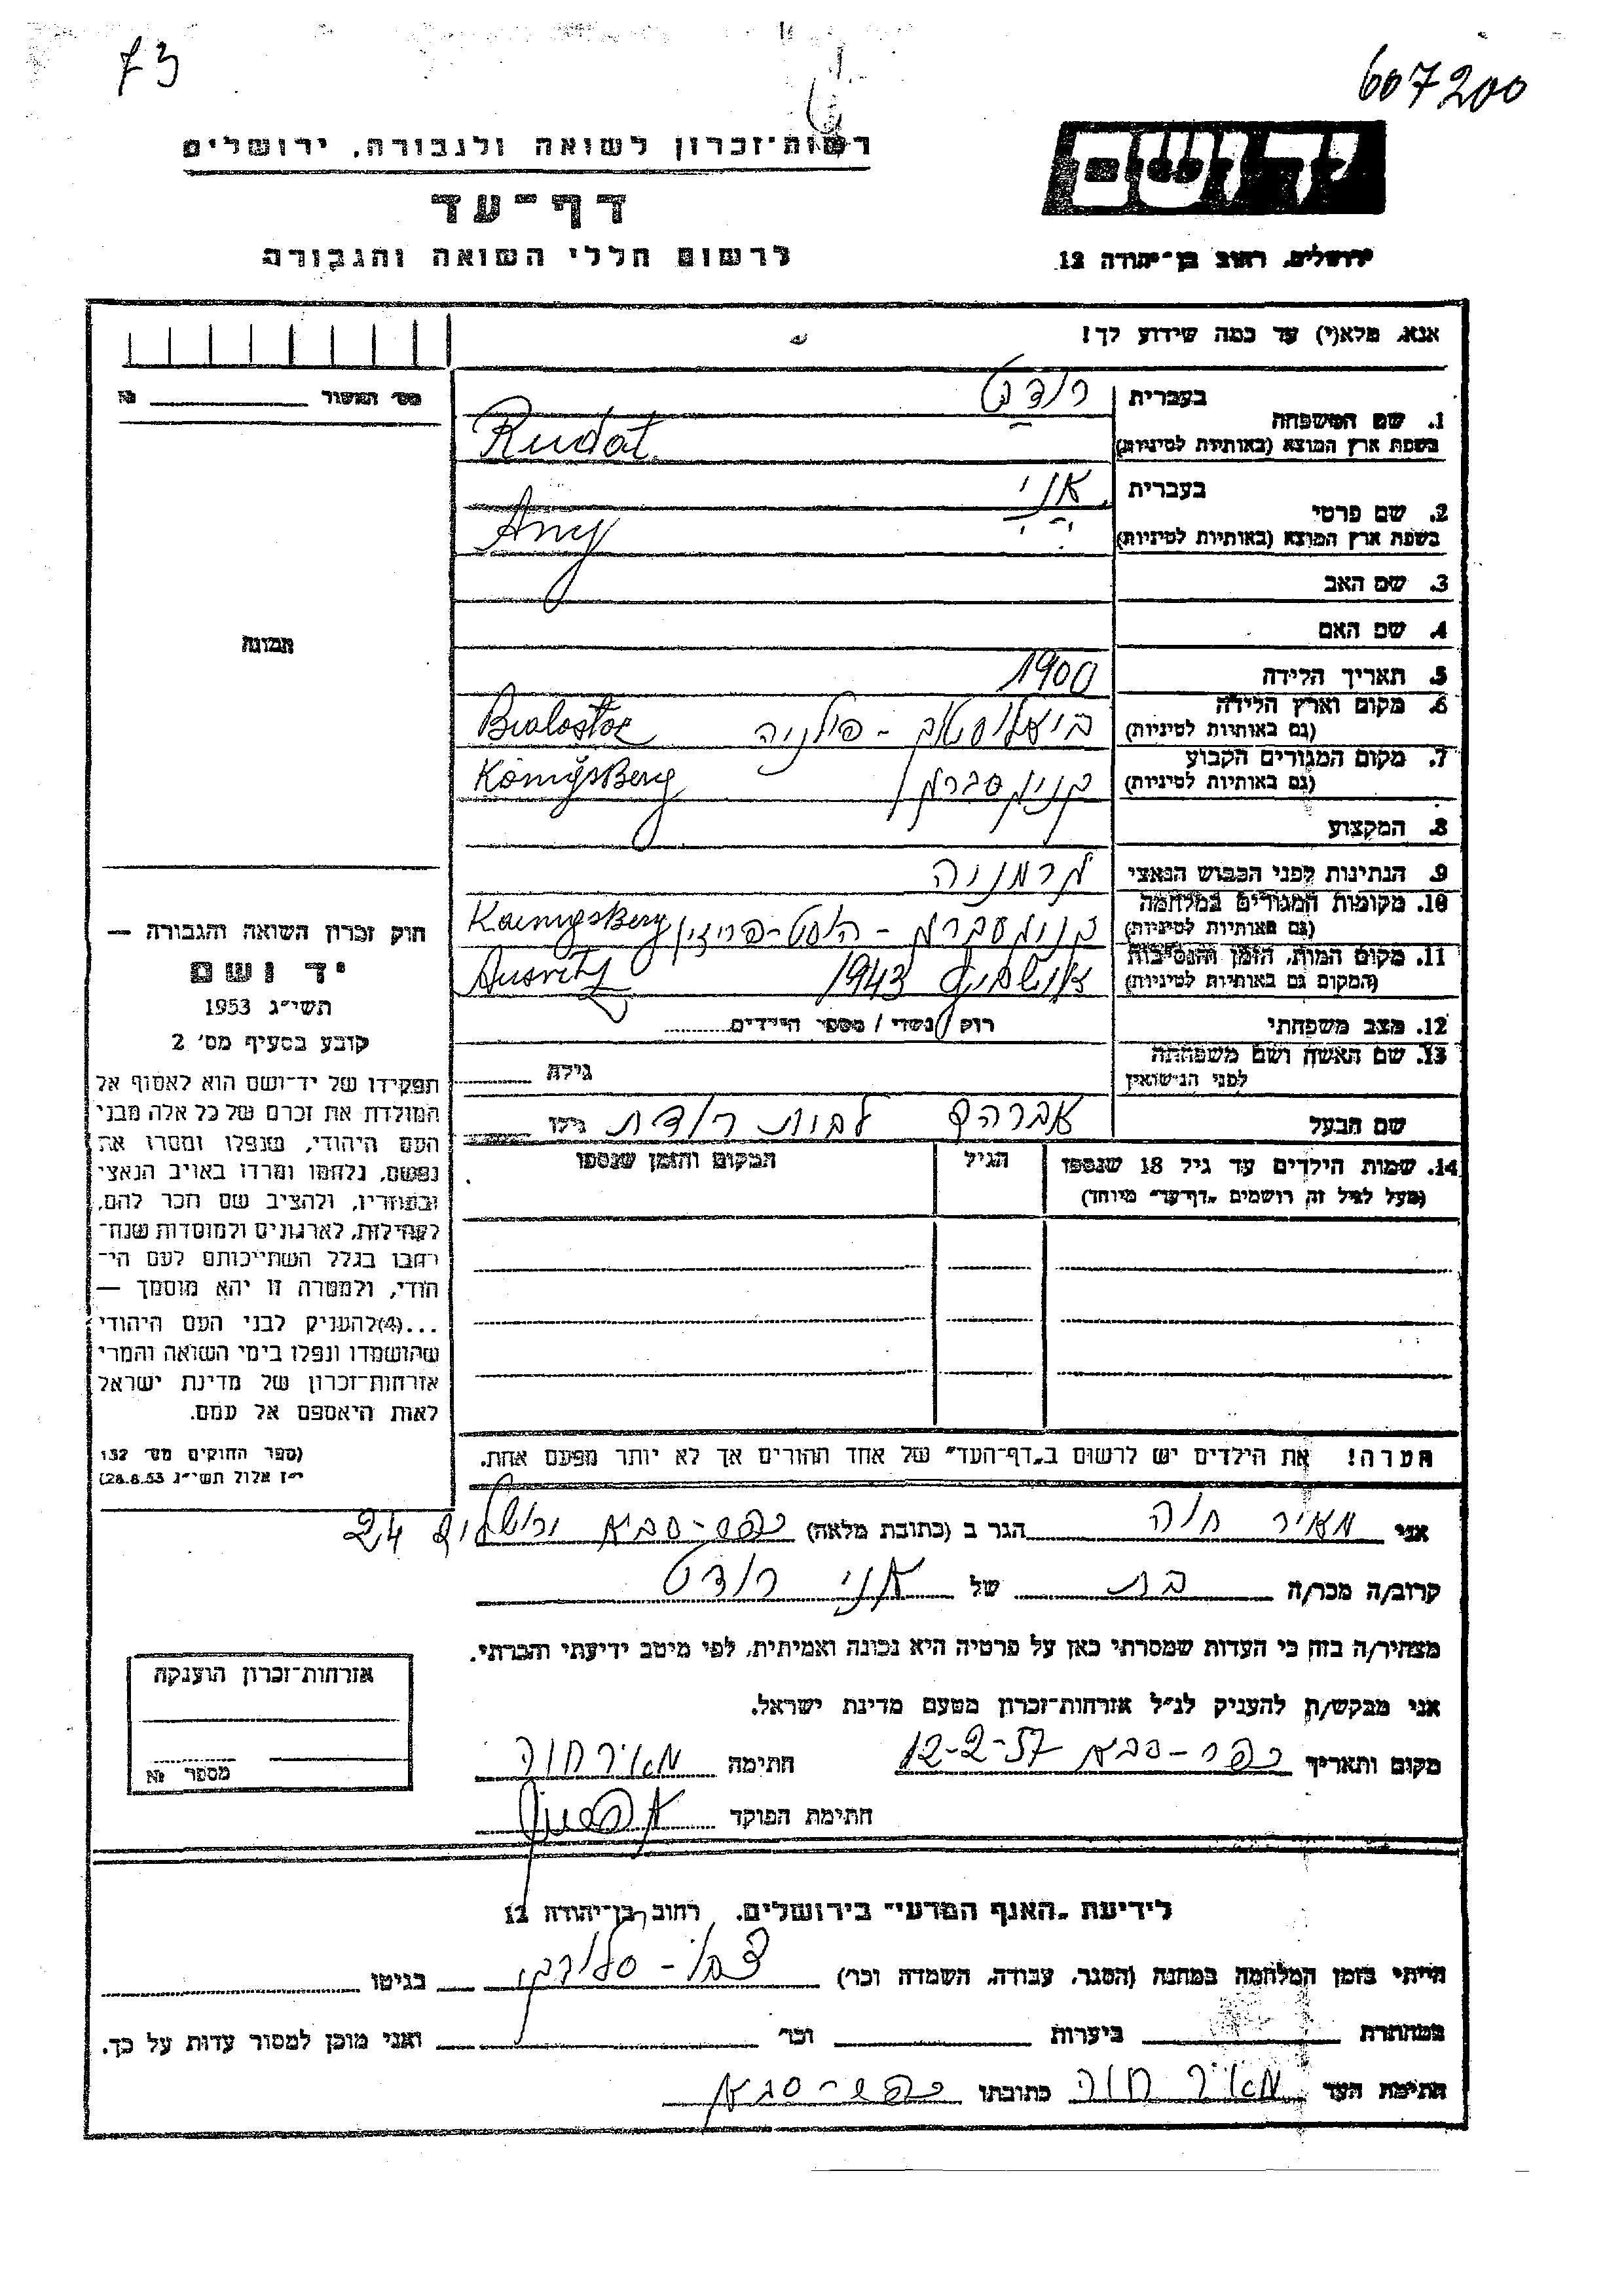 73
607200
רשות־זכרון לשואה ולגבורה, ירושלים
דף־עד
לרשום חללי השואה והגבורה
יד ושם
ירושלים, רחוב בן־יהודה 12
אנא, מלא(י) עד כמה שידוע לך!
מס׳ האשור № 
1. שם המשפחה בעברית רודט
בשפת ארץ המוצא (באותיות לטיניות) Rudat
2. שם פרטי בעברית אני
בשפת ארץ המוצא (באותיות לטיניות) Any
3. שם האב
4. שם האם
תמונה
5. תאריך הלידה 1900
6. מקום וארץ הלידה
(גם באותיות לטיניות) ביאליסטוק - פולניה Bialostoc
7. מקום המגורים הקבוע
(גם באותיות לטיניות) קניגסברג Königsberg
8. המקצוע
9. הנתינות לפני הכבוש הנאצי גרמניה
10. מקומות המגורים במלחמה
(גם באותיות לטיניות) קניגסברג - Koenigsberg
11. מקום המות, הזמן והנסיבות
(המקום גם באותיות לטיניות) אושויץ 1943
12. מצב משפחתי רווק / נשוי / מספר הילדים
13. שם האשה ושם משפחתה
לפני הנישואין גילה
שם הבעל אברהם לבית רודת גילו
14. שמות הילדים עד גיל 18 שנספו
(מעל לגיל זה רושמים „דף־עד״ מיוחד)
הגיל
המקום והזמן שנספו
חוק זכרון השואה והגבורה —
יד ושם
תשי״ג 1953
קובע בסעיף מס׳ 2
תפקידו של יד־ושם הוא לאסוף אל
המולדת את זכרם של כל אלה מבני
העם היהודי, שנפלו ומסרו את
נפשם, נלחמו ומרדו באויב הנאצי
ובעוזריו, ולהציב שם וזכר להם,
לקהילות, לארגונים ולמוסדות שנח־
רבו בגלל השתייכותם לעם הי־
הודי, ולמטרה זו יהא מוסמך —
...(4)להעניק לבני העם היהודי
שהושמדו ונפלו בימי השואה והמרי
אזרחות־זכרון של מדינת ישראל
לאות היאספם אל עמם.
(ספר החוקים מס׳ 132
י״ז אלול תשי״ג 28.8.53)
הערה! את הילדים יש לרשום ב„דף־העד״ של אחד ההורים אך לא יותר מפעם אחת.
אני מאיר חוה הגר ב (כתובת מלאה) כפר-סבא ירושלים 24
קרוב/ה מכר/ה בת של אני רודט
מצהיר/ה בזה כי העדות שמסרתי כאן על פרטיה היא נכונה ואמיתית, לפי מיטב ידיעתי והכרתי.
אני מבקש/ת להעניק לנ״ל אזרחות־זכרון מטעם מדינת ישראל.
מקום ותאריך כפר-סבא 12-2-57 חתימה מאיר חוה
חתימת הפוקד
אזרחות־זכרון הוענקה
מספר №
לידיעת „האגף המדעי״ בירושלים. רחוב בן־יהודה 12
הייתי בזמן המלחמה במחנה (הסגר, עבודה, השמדה וכו׳) בגיטו
במחתרת ביערות וכו׳ ואני מוכן למסור עדות על כך.
חתימת העד מאיר חוה כתובתו כפר-סבא